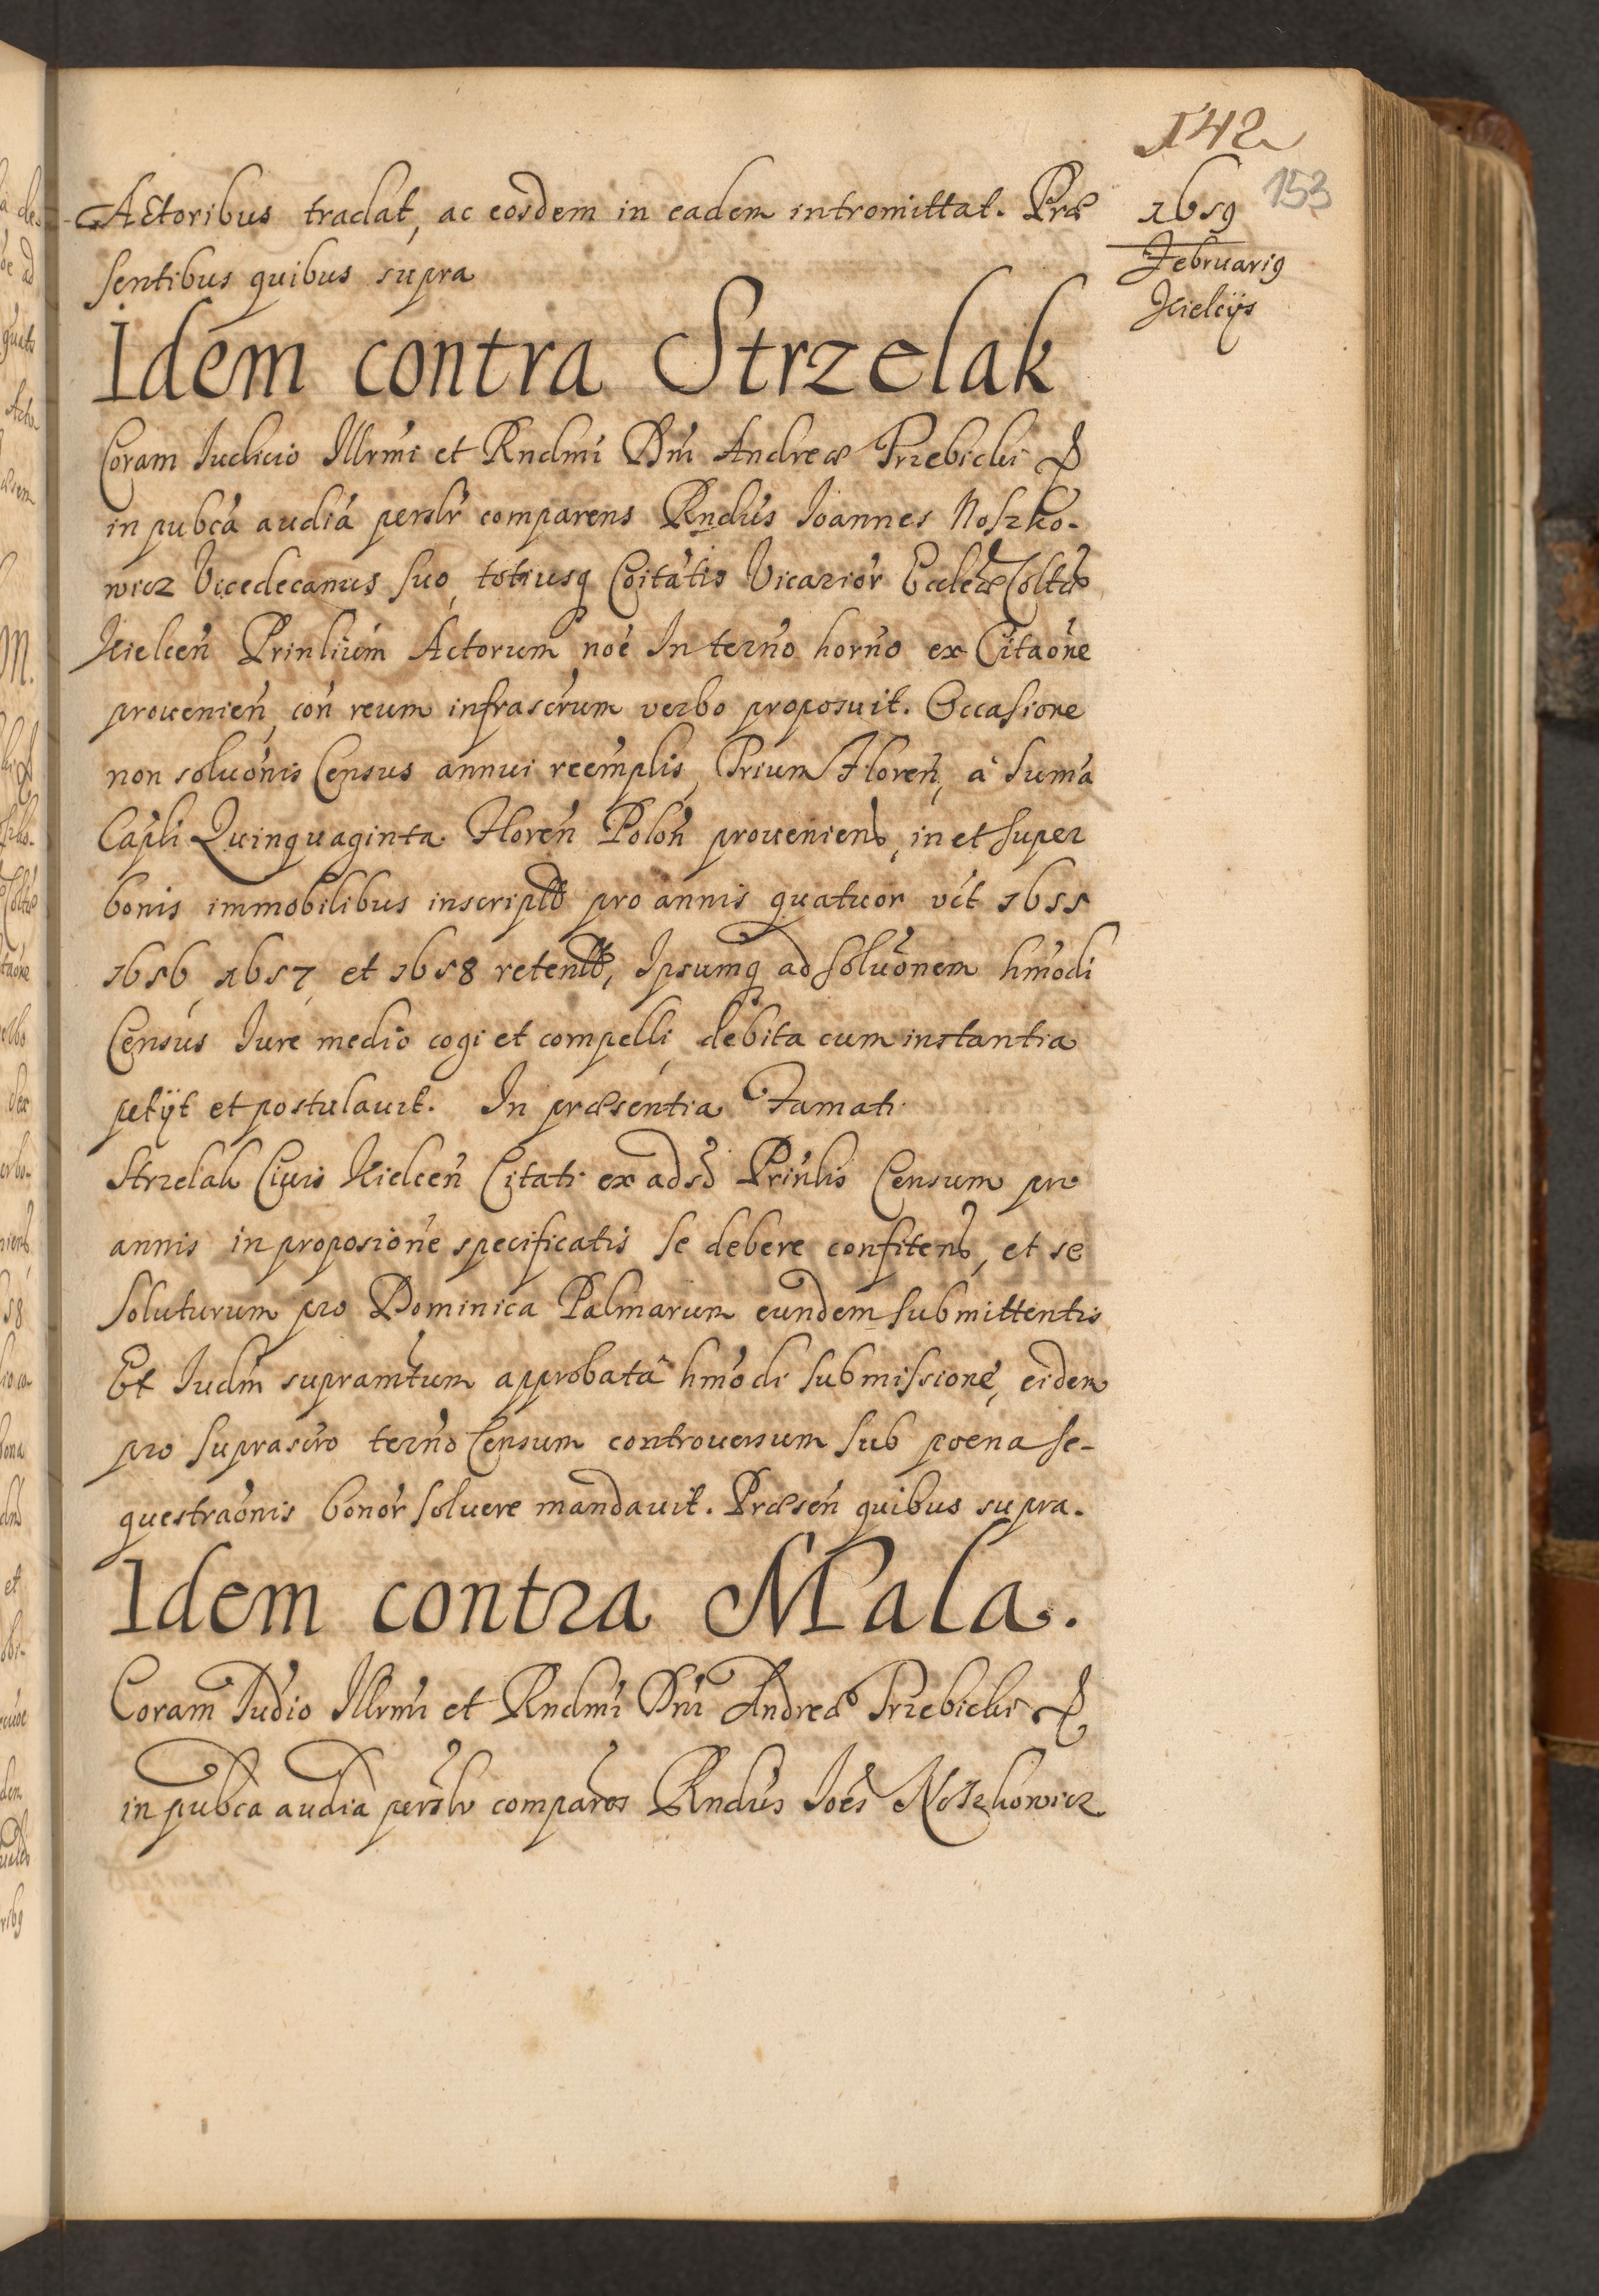 142
153
1659
Februarig
Kielcijs
Actoribus tradat, ac eosdem in eadem intromittat. Præ
sentibus quibus supra
Idem contra Strzelak
Coram Iudicio Illrmi et Rndmi Dni Andreæ Trzebicki
in pubca audia persolr comparens Rndus Ioannes Noszko-
wicz Vicedecanus suo, totiusq Coitatis Vicarior Ecclæ Coltæ
Kielcen Prinlium Actorum noe In terno horno ex Citaone
prouenien, con reum infrascrum verbo proposuit. Occasione
non soluonis Census annui reemplis, Trium Floren, a suma
Capli Quinquaginta Floren Polon prouenien, in et super
bonis immobilibus inscript pro annis quatuor vct 1655
1656, 1657, et 1658 retent, Ipsumq ad soluonem hmodi
Census Iure medio cogi et compelli, debita cum instantia
petijt et postulauit. In præsentia Famati
Strzelak Ciuis Kielcen Citati ex adso Prinlis Censum pro
annis in proposione specificatis se debere confiten, et se
soluturum pro Dominica Palmarum eundem submittentis
Et Iudm supramtum approbata hmodi submissione, eidem
pro suprascro terno Censum controuersum sub poena se-
questraonis bonor soluere mandauit. Præsen quibus supra.
Idem contra Mala.
Coram Iudio Illrmi et Rndmi Dni Andreæ Trzebicki
in pubca audia persolr compares Rndus Ioes Noszkowicz